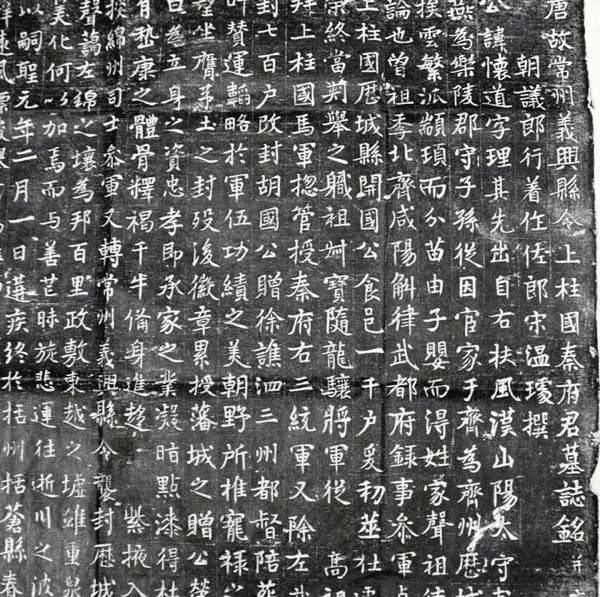 唐故常州義興縣令上柱國秦府君墓誌銘并
朝議郎行著作佐郎宋溫璩撰
公諱懷道字理其先出自右扶風漢山陽太守
燕為樂陵郡守子孫從因官家于齊為齊州歷城
撲雲繁派顓頊而分苗由子嬰而得姓家聲祖德
論也曾祖季北齊咸陽斛律武都府録事叅軍
上柱國歷城縣開國公食邑一千戶爰初莖仕
崇終當判舉之職祖奴寶隨龍驤將軍從 高祖
拜上柱國馬軍揔管授秦府右三統軍又除左武
封七百戶改封胡國公贈徐譙泗三州都督陪葬
叶贊運韜略於軍伍功績之美朝野所推寵禄
望坐膺茅土之封歿後徽章累授藩城之贈公
曰為立身之資忠孝即承家之業凝晤點漆得杜
有嵇康之體骨釋褐千牛俻身進趍 紫掖入
授綿州司士叅軍又轉常州義興縣令襲封歷城
聲藹左綿之壤為邦百里政敷東越之墟雉重泉
美化何以加焉而与善芒昧旋悲運往逝川之波
以嗣聖元年二月一日遘疾終於括州括蒼縣春